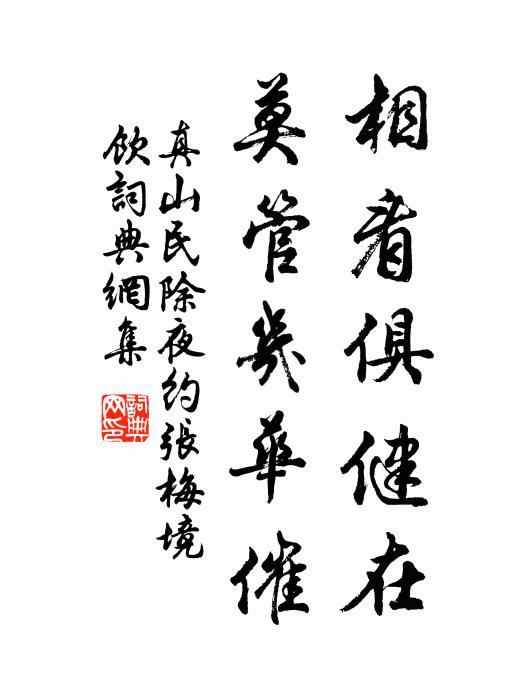 相看俱健在
莫管幾華催
真山民除夜約張梅境
飲詞典網集
詞典網印